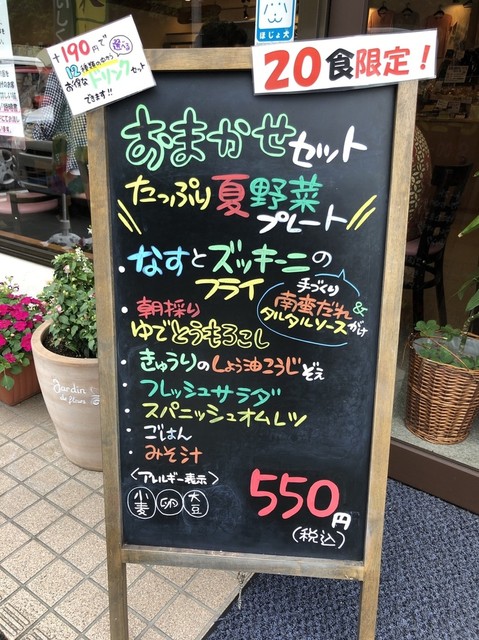 +190円で
12種類の中から選べる
お得なドリンクセット
できます!!
ほじょ犬
20食限定!
おまかせセット
たっぷり夏野菜
プレート
・なすとズッキーニの
フライ
手づくり
南蛮だれ&
タルタルソースがけ
・朝採り
ゆでとうもろこし
・きゅうりのしょう油こうじぞえ
・フレッシュサラダ
・スパニッシュオムレツ
・ごはん
・みそ汁
<アレルギー表示>
小麦 卵 大豆
550円
(税込)
Jardin
de fleur